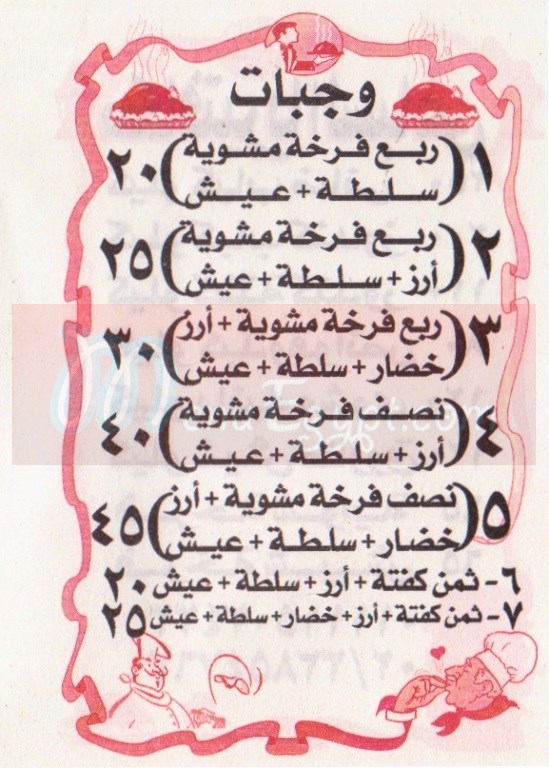 وجبات
١ ( ربع فرخة مشوية
سلطة + عيش ) ٢٠
٢ ( ربع فرخة مشوية
أرز + سلطة + عيش ) ٢٥
٣ ( ربع فرخة مشوية + أرز
خضار + سلطة + عيش ) ٣٠
٤ ( نصف فرخة مشوية
أرز + سلطة + عيش ) ٤٠
٥ ( نصف فرخة مشوية + أرز
خضار + سلطة + عيش ) ٤٥
٦- ثمن كفتة + أرز + سلطة + عيش ٢٠
٧- ثمن كفتة + أرز + خضار + سلطة + عيش ٢٥